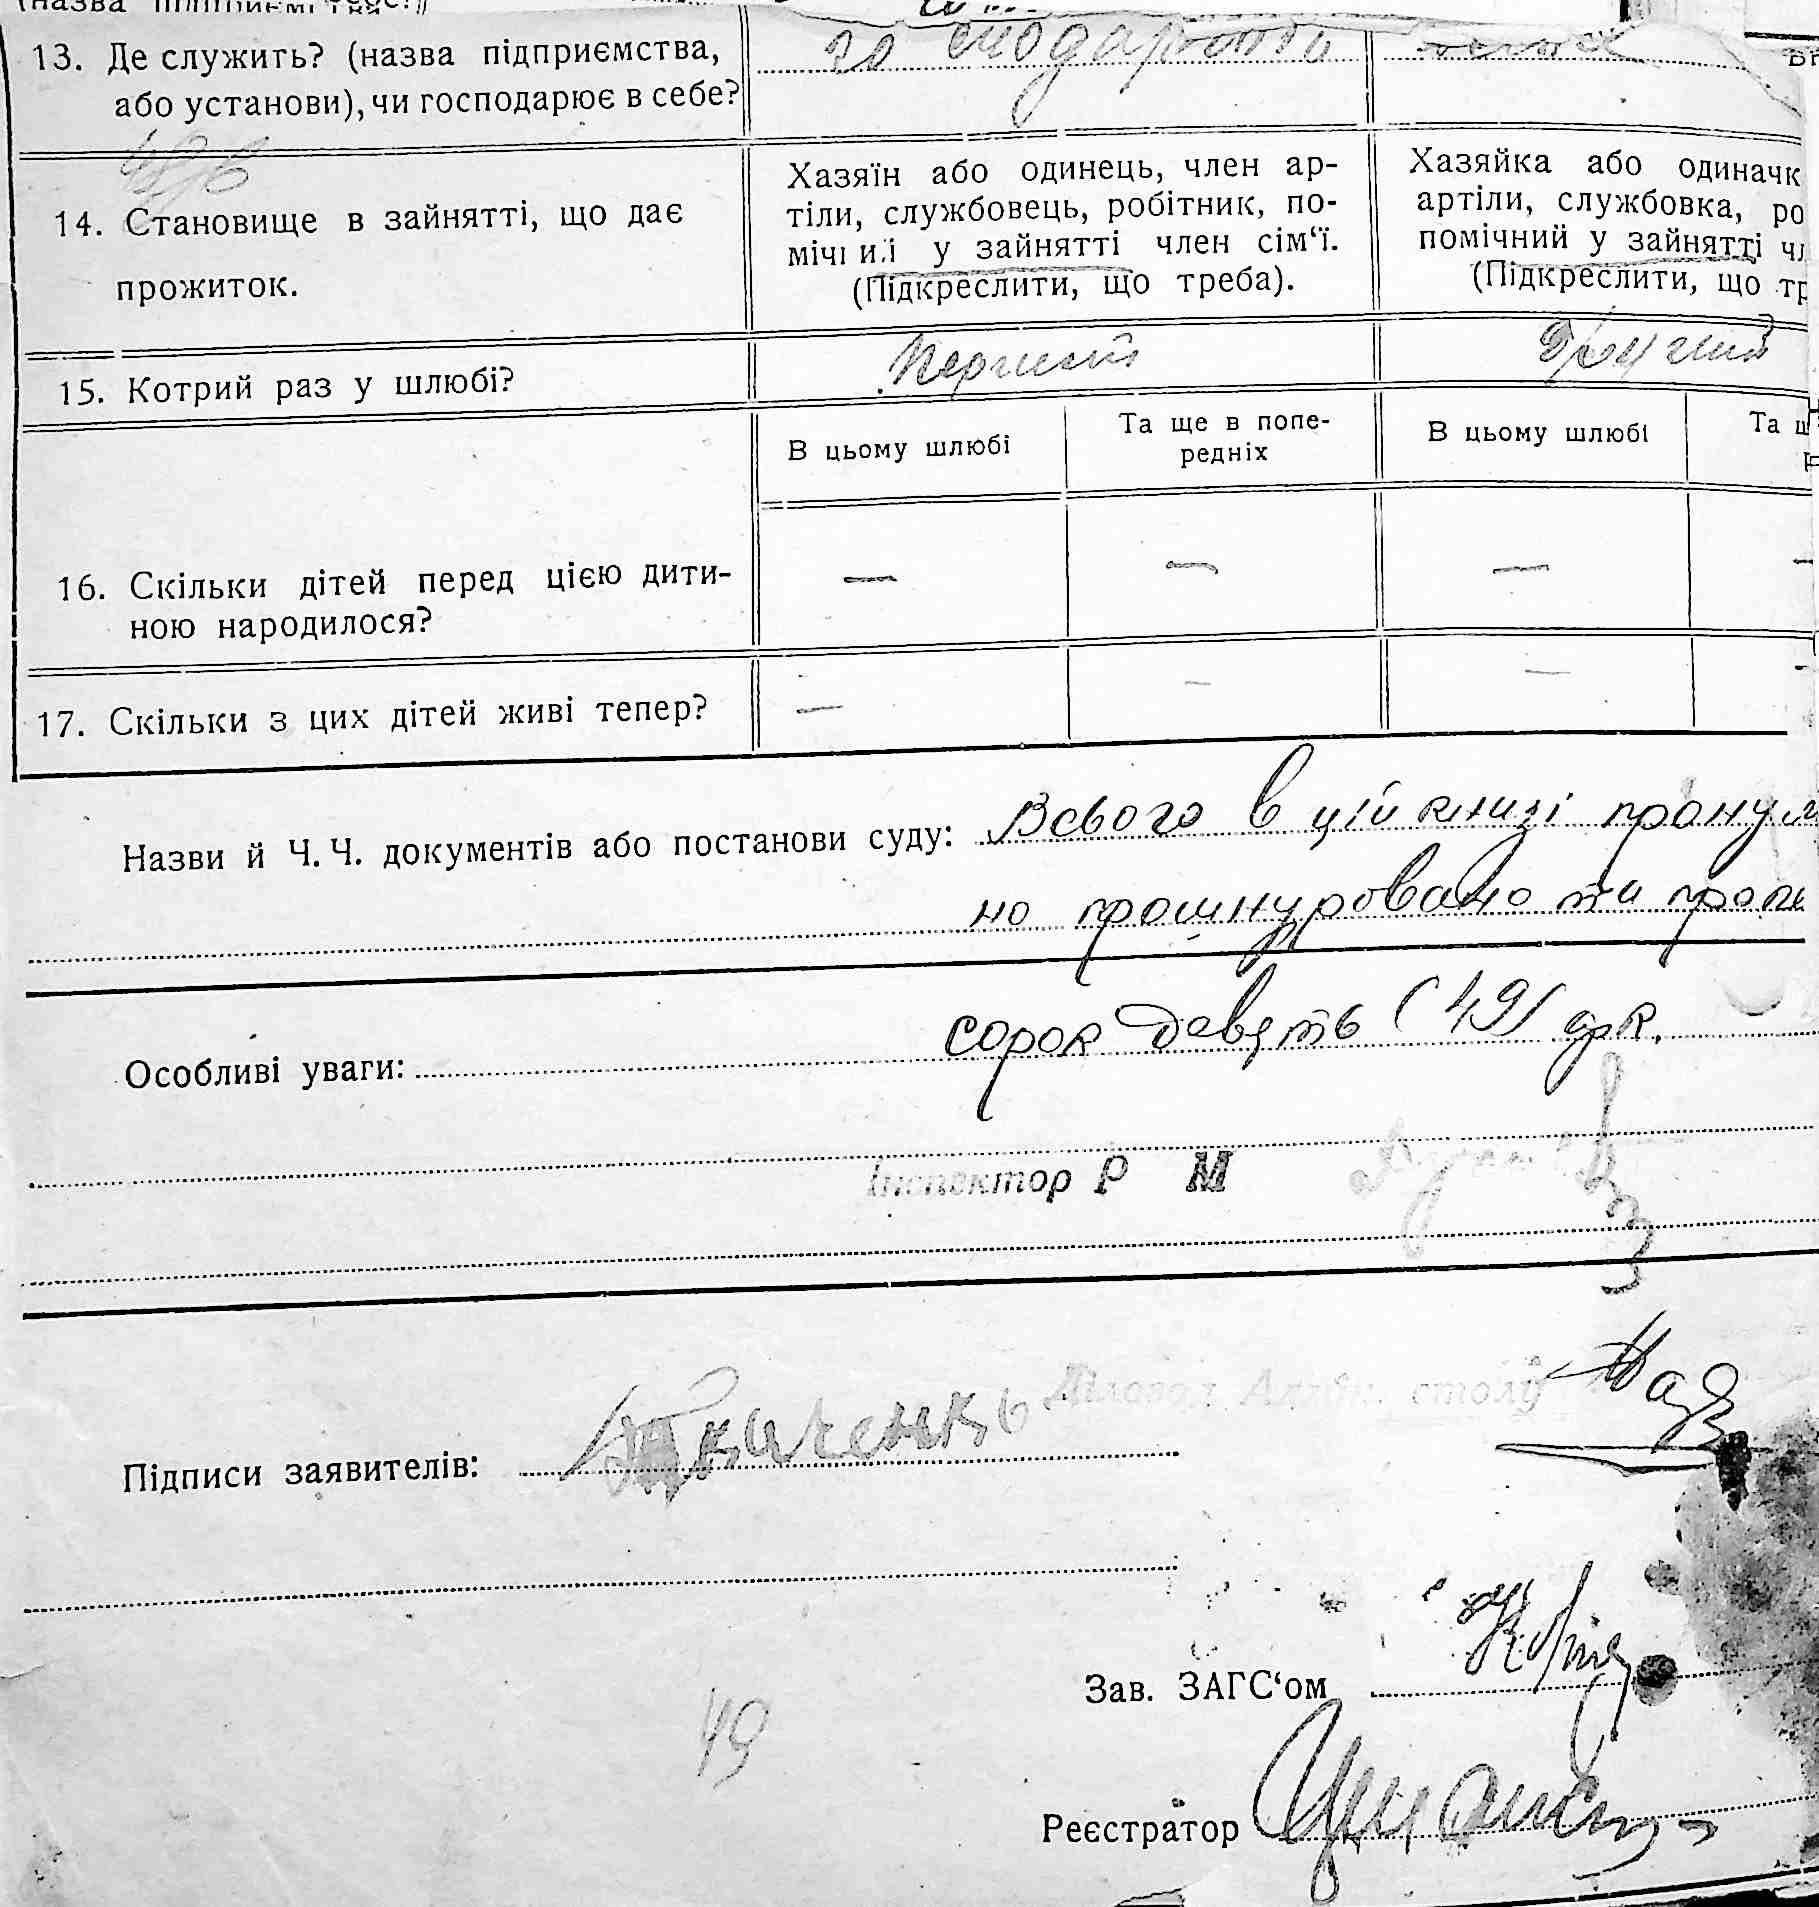 13. Де служить? (назва підприємства,
або установи), чи господарює в себе?
господарстві
14. Становище в зайнятті, що дає
прожиток.
Хазяїн або одинець, член ар-
тіли, службовець, робітник, по-
мічний у зайнятті член сім‘ї.
(Підкреслити, що треба).
Хазяйка або одиначк
артіли, службовка, ро
помічний у зайнятті чл
(Підкреслити, що тр
15. Котрий раз у шлюбі?
Перший
Другий
В цьому шлюбі
Та ще в попе-
редніх
В цьому шлюбі
Та щ
16. Скільки дітей перед цією дити-
ною народилося?
— — — —
17. Скільки з цих дітей живі тепер?
— — — -
Назви й Ч. Ч. документів або постанови суду: Всього в цій книзі пранум
но прошнуровано та
Особливі уваги: сорок девять (49) арк.
Інспектор Р М
Діловод Адмін. столу
Підписи заявителів: Ткаченко
Зав. ЗАГС‘ом
49
Реєстратор